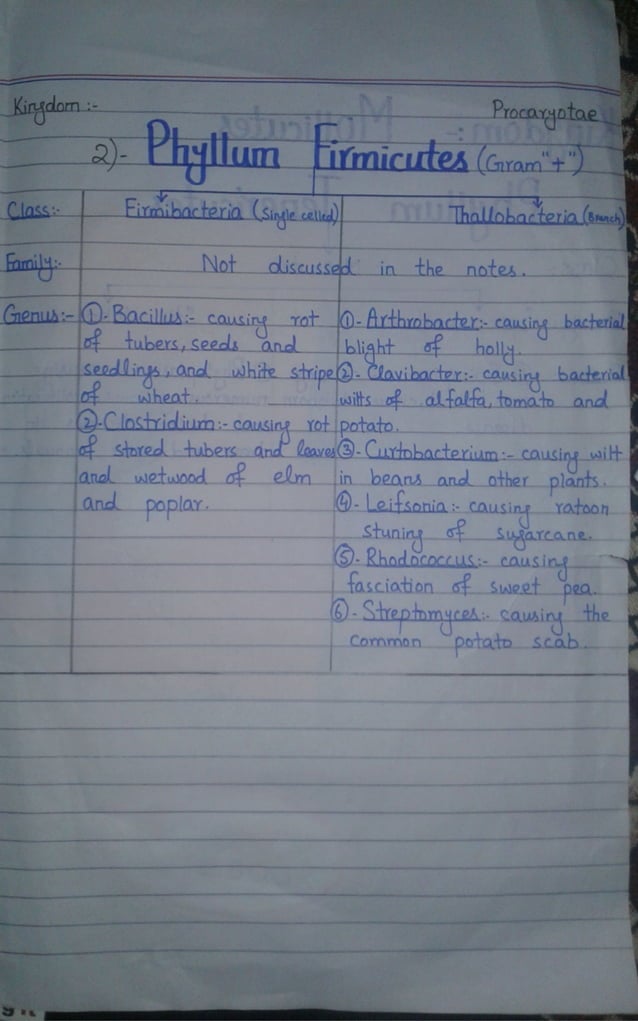 Kingdom :- Procaryotae
2)- Phyllum Firmicutes (Gram "+")
Class:- Firmibacteria (Single celled) Thallobacteria (Branch)
Family:- Not discussed in the notes.
Genus:- ①- Bacillus:- causing rot
of tubers, seeds and
seedlings, and white stripe
of wheat.
②- Clostridium:- causing rot
of stored tubers and leaves
and wetwood of elm
and poplar.
①- Arthrobacter:- causing bacterial
blight of holly.
②- Clavibacter:- causing bacterial
wilts of alfalfa, tomato and
potato.
③- Curtobacterium:- causing wilt
in beans and other plants.
④- Leifsonia:- causing ratoon
stuning of sugarcane.
⑤- Rhodococcus:- causing
fasciation of sweet pea.
⑥- Streptomyces:- causing the
common potato scab.